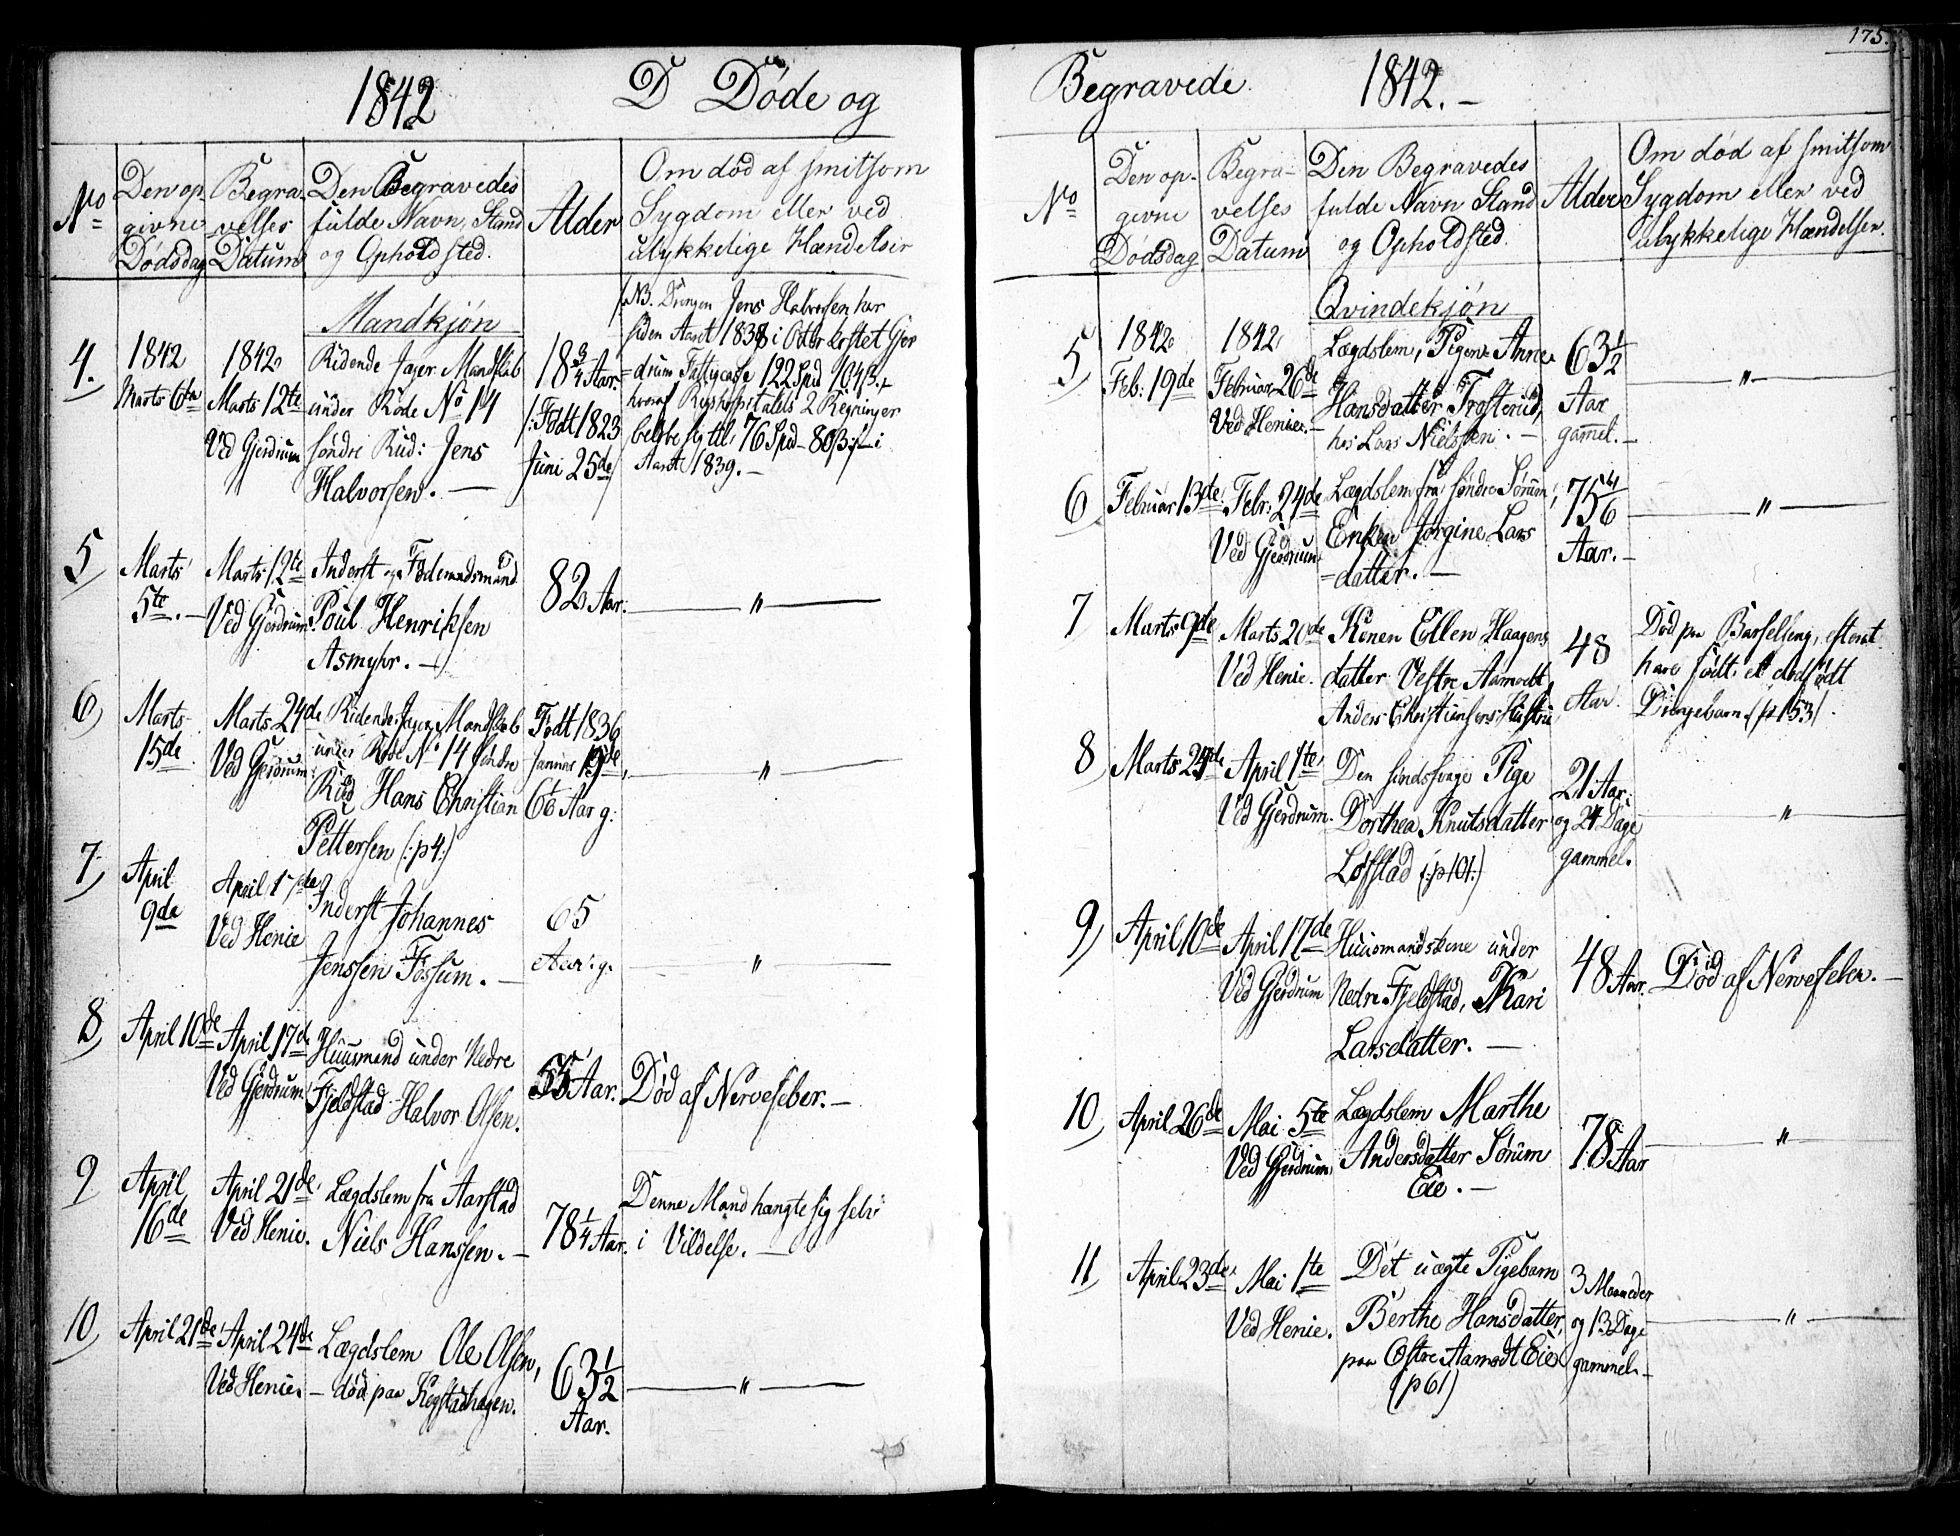 175.
1842 D Døde og
No
Den op-
givne
Dødsdag
Begra-
velses
Datum
Den Begravedes
fulde Navn, Stand
og Opholdsted.
Alder
Om død af smitsom
Sygdom eller ved
ulykkelige Hændelser
Mandkjøn
4.
1842
Marts 6te
1842
Marts 12te
Ved Gjerdrum
Ridende Jæger Mandskab
under Rode No 14
søndre Rud: Jens
Halvorsen. —
18 3/4 Aar.
/: Født 1823
Juni 25de/
NB. Drengen Jens Halvorsen har
siden Aaret 1838 i kostet Gjer
=drum Fattigcasse 122 Spd 104 ß.
hvoraf Rigshospitalets 2 Regninger
beløbe sig til 76 Spd 80 ß i
Aaret 1839. —
5)
Marts
5te. —
Marts 12te
Ved Gjerdrum
Inderst og Fødemadsmand
Poul Henriksen
Asmyhr. —
82 Aar.
— " —
6)
Marts
15de
Marts 24de
Ved Gjerdrum
Ridende Jæger Mandskab
under Rode No 14 søndre
Rud Hans Christian
Pettersen (: p 4:)
Født 1836
Januar 19de,
6 Aar g:
— " —
7)
April
9de
April 17de
Ved Henie
Inderst Johannes
Jenssen Fossum. —
65
Aar: g.
— " —
8)
April 10de
April 17de
Ved Gjerdrum
Huusmand under Nedre
Fjeldstad Halvor Olsen.
55 Aar.
Død af Nervefeber. —
9
April
16de
April 21de
Ved Henie.
Lægdslem fra Aarstad
Niels Hanssen. —
78 1/4 Aar.
Denne Mand hangte sig selv
i Vildelse. —
10)
April 21de
April 24de
Ved Henie.
Lægdslem Ole Olsen,
— død paa Kogstadhagen.
63 1/2
Aar.
— " —
Begravede. 1842. —
No
Den op-
givne
Dødsdag
Begra-
velses
Datum
Den Begravedes
fulde Navn Stand
og Opholdsted.
Alder
Om død af smitsom
Sygdom eller ved
ulykkelige Hændelser.
Qvindekjøn
5)
1842
Feb: 19de
1842
Februar 26de
Ved Henie. —
Lægdslem, Pigen Anne
Hansdatter Trosterud,
hos Lars Nielssen. —
63 1/2
Aar
gammel. —
— " —
6)
Februar 13de
Febr: 24de
Ved Gjerdrum
Lægdslem fra søndre Sørum,
Enken Jørgine Lars
=datter. —
75 4/6
Aar. —
— " —
7)
Marts 9de
Marts 20de
Ved Henie.
Konen Ellen Haagens
datter Vestre Aamodt
Anders Christiansens Hustrue
48
Aar.
Død paa Barselseng, efter at
have født et dødfødt
Drengebarn (p 153).
8)
Marts 24de
April 1te
Ved Gjerdrum.
Den sindssvage Pige
Dorthea Knutsdatter
Løfstad (: p 101:)
21 Aar
og 24 Dage
gammel.
— " —
9)
April 10de
April 17de
Ved Gjerdrum
Huusmandskone under
Nedre Fjeldstad, Kari
Larsdatter. —
48 Aar.
Død af Nervefeber. —
10)
April 26de
Mai 5te
Ved Gjerdrum
Lægdslem Marthe
Andersdatter Sørum
Eie. —
78 Aar
— " —
11)
April 23de
Mai 1te
Ved Henie.
Det uægte Pigebarn
Berthe Hansdatter,
paa Østre Aamodt Eie
(p 61)
3 Maaneder
og 13 Dage
gammel. —
— " —